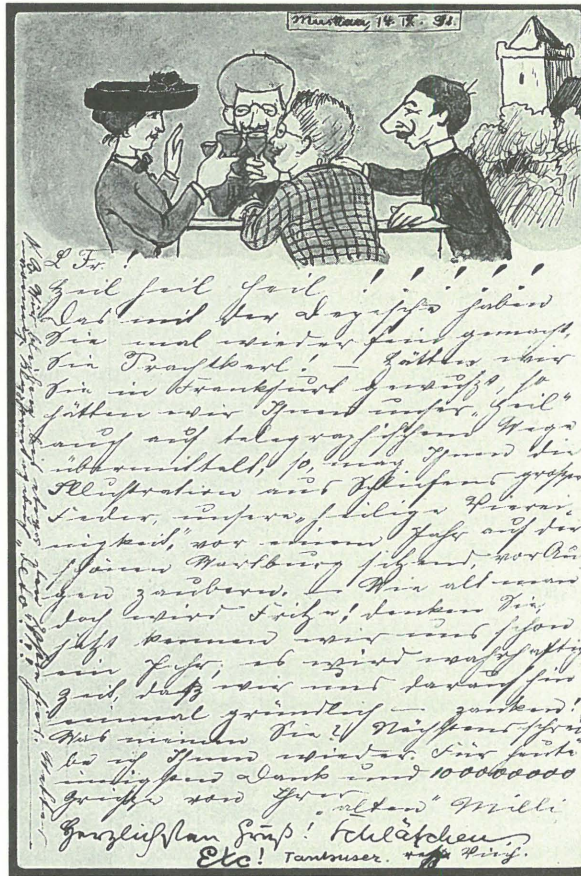 Muskau, 14. IX. 98.
L. Fr.!
Heil heil heil !!!!!!
Das mit der Depesche haben
Sie mal wieder fein gemacht,
Sie Prachtkerl! – Hätten wir
Sie in Frankfurt gewußt, so
hätten wir Ihnen unser „Heil“
auch auf telegraphischem Wege
übermittelt, so mag Ihnen die
Illustration aus Schleifens großer
Feder, unsere „heilige Vierei-
nigkeit,“ vor einem Jahr auf der
schönen Wartburg sitzend, vor Au-
gen zaubern. – Wie alt man
doch wird Fritze! denken Sie,
jetzt kennen wir uns schon
ein Jahr, es wird wahrhaftig
Zeit, daß wir uns daraufhin
einmal gründlich – zanken!
Was meinen Sie? Nächstens schrei
be ich Ihnen wieder. Für heute
innigsten Dank und 100000000
Grüße von Ihrer
„alten“ Milli
Herzlichsten Gruß! Schläfchen
Etc! Tanhuser.